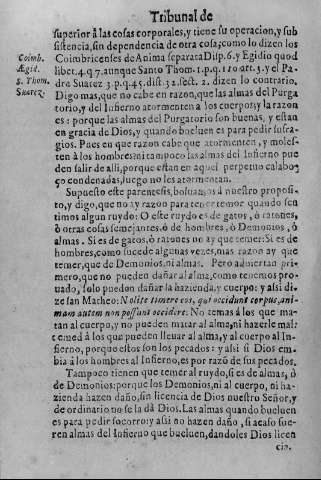 Tribunal de
superior â las cosas corporales, y tiene su operacion, y sub
sistencia, sin dependencia de otra cosa; como lo dizen los
Coimb. Coimbricenses de Anima separata Disp. 6. y Egidio quod
Ægid. libet. 4. q. 7. aunque Santo Thom. 1. p. q. 110 art. 3. y el Pa-
S. Thom. dre Suarez 3. p. q. 45. dist. 3 2. sect. 2. dizen lo contrario.
Suarez. Digo mas, que no cabe en razon, que las almas del Purga
torio, y del Infierno atormenten à los cuerpos: y la razon
es: porque las almas del Purgatorio son buenas, y estan
en gracia de Dios, y quando bueluen es para pedir sufra-
gios. Pues en que razon cabe que atormenten, y moles-
ten à los hombres? ni tampoco las almas del Infierno pue
den salir de alli, porque estan en aquel perpetuo calabo
ço condenadas, luego no les atormentan.
Supuesto este parentesis, boluamos à nuestro proposi-
to, y digo, que no ay razon para tener temor quando sen
timos algun ruydo: O este ruydo es de gatos, ò ratones,
ò otras cosas semejantes, ò de hombres, ò Demonios, ò
almas. Si es de gatos, ò ratones no ay que temer: Si es de
hombres, como sucede algunas vezes, mas razon ay que
temer, que de Demonios, ni almas. Pero aduiertan pri-
mero, que no pueden dañar al alma, como tenemos pro-
uado, solo pueden dañar la hazienda, y cuerpo: y assi di-
ze san Matheo: Nolite timere eos, qui occidunt corpus, ani-
mam autem non possunt occidere: No temas à los que ma-
tan al cuerpo, y no pueden matar al alma, ni hazerle mal:
temed à los que pueden lleuar al alma, y al cuerpo al In-
fierno, porque estos son los pecados: y assi si Dios em-
bia à los hombres al Infierno, es por razõ de sus pecados.
Tampoco tienen que temer al ruydo, si es de almas, ò
de Demonios: porque los Demonios, ni al cuerpo, ni ha-
zienda hazen daño, sin licencia de Dios nuestro Señor, y
de ordinario no se la dà Dios. Las almas quando bueluen
es para pedir socorro: y assi no hazen daño, si acaso fue-
ren almas del Infierno que bueluen, dandoles Dios licen
cia,